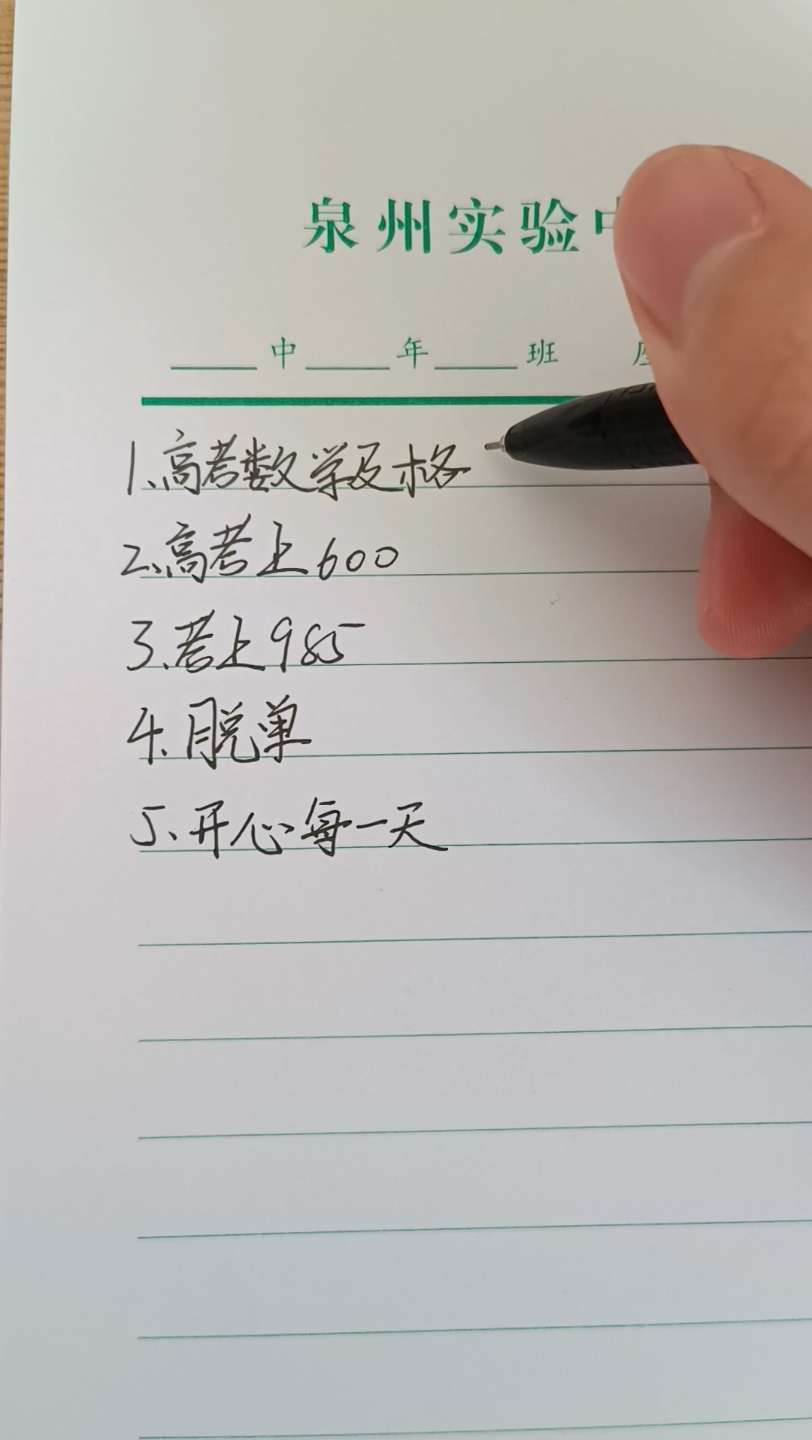 泉州实验中
中 年 班 座
1、高考数学及格
2、高考上600
3、考上985
4、脱单
5、开心每一天